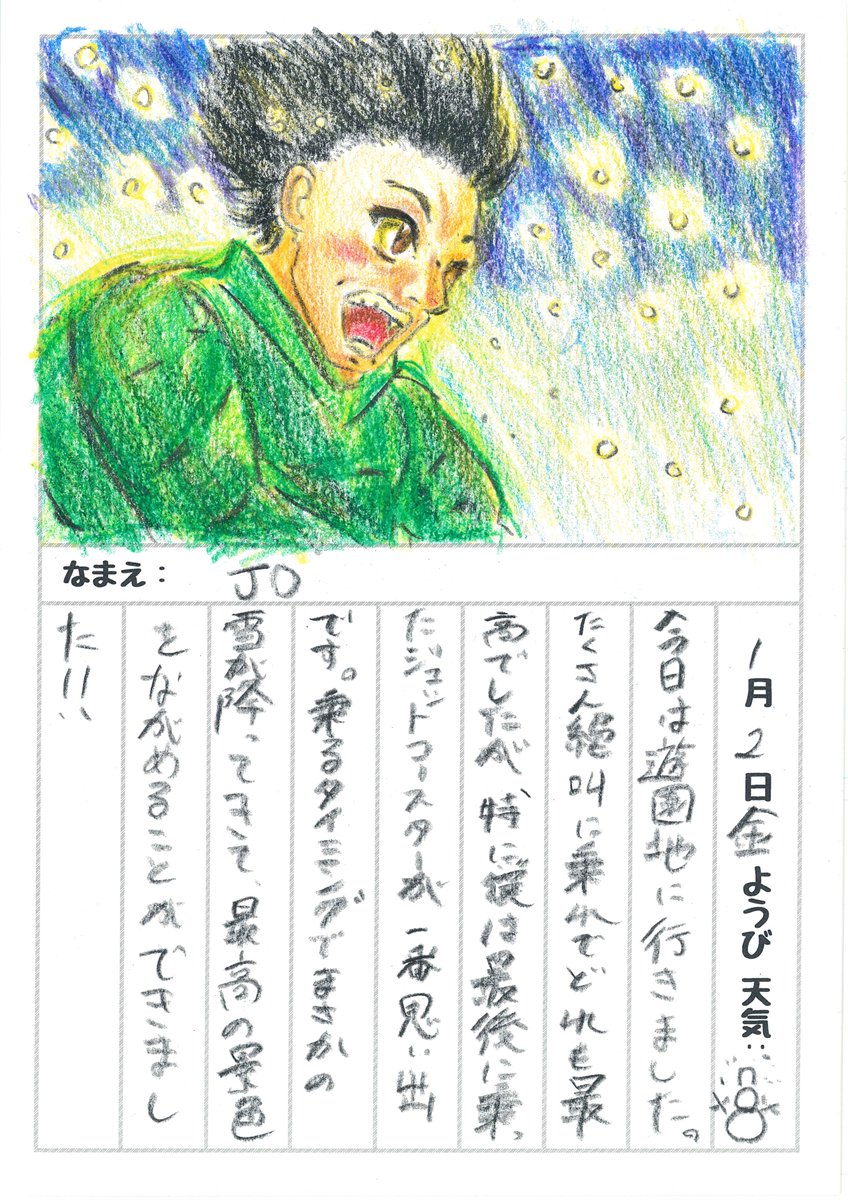 なまえ： JO
1月2日金ようび 天気：
今日は遊園地に行きました。
たくさん絶叫に乗れてどれも最
高でしたが、特に僕は最後に乗っ
たジェットコースターが一番思い出
です。乗るタイミングでまさかの
雪が降ってきて、最高の景色
をながめることができまし
た!!